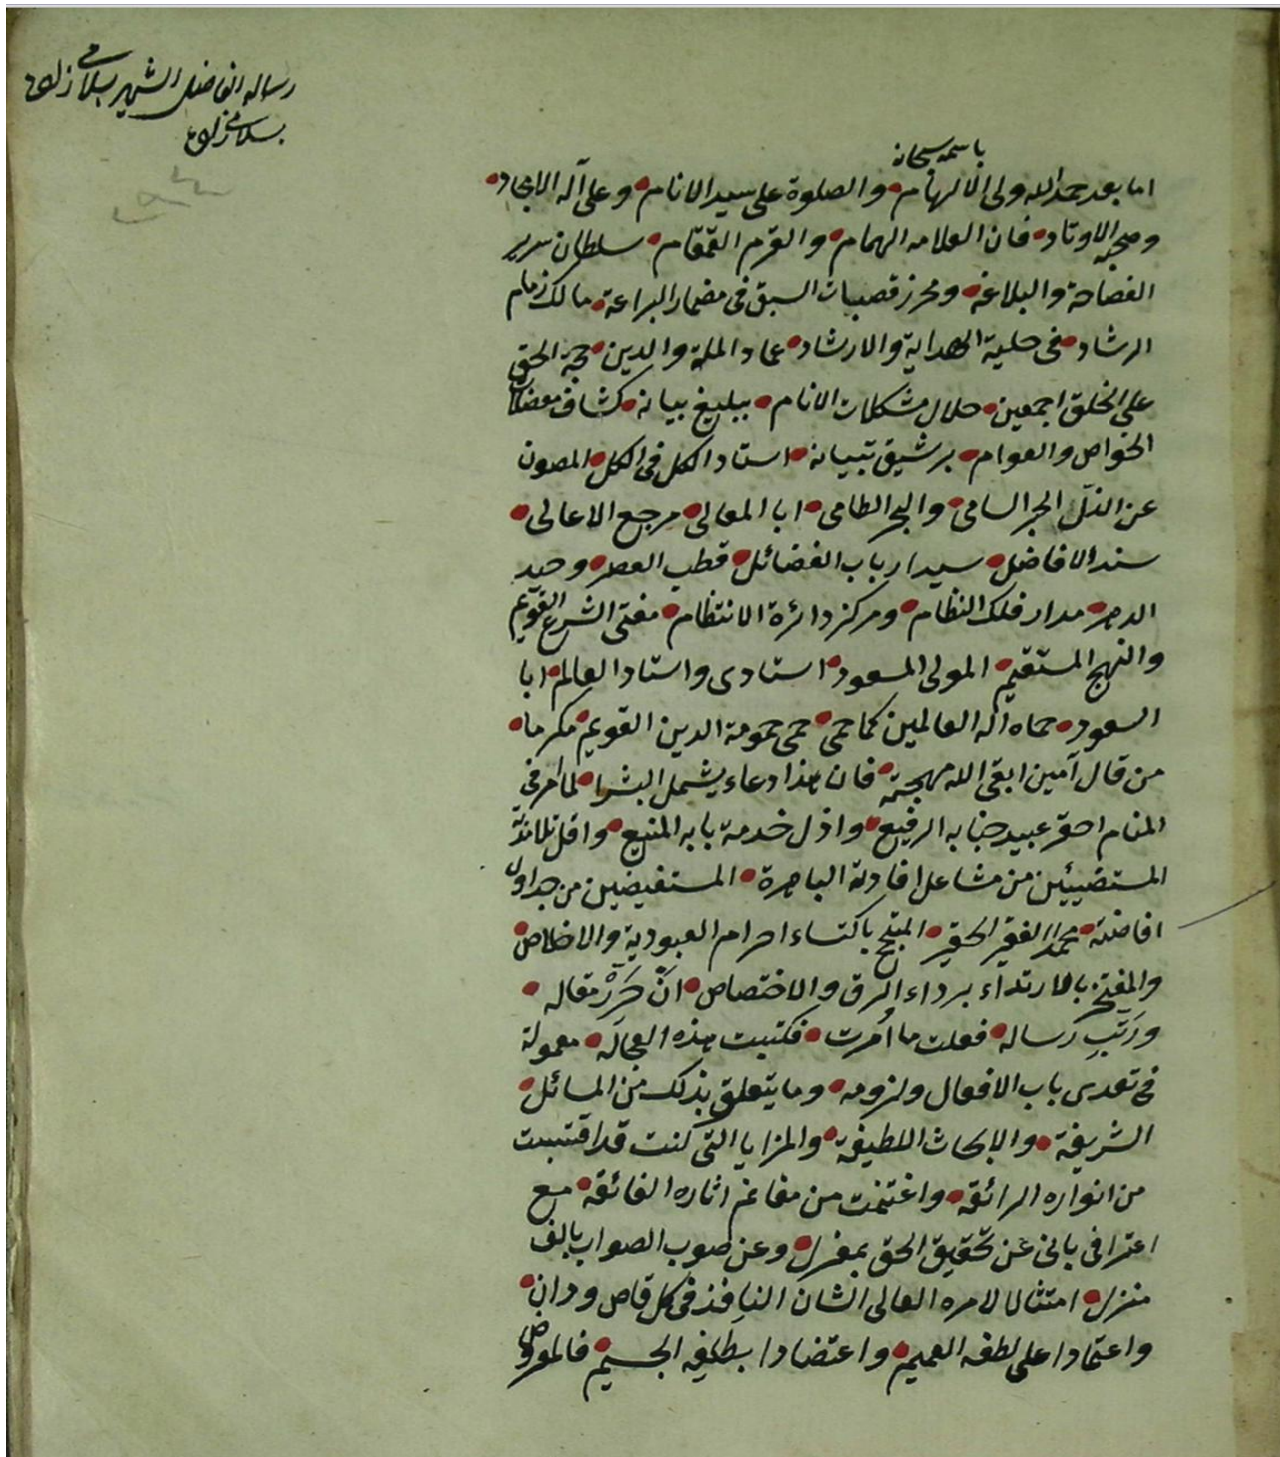 رساله الفاضل الشهير بسلامى
بسلامى
باسمه سبحانه
اما بعد حمد الله ولى الالهام والصلوة على سيد الانام وعلى آله الامجاد
وصحبه الاوتاد فان العلامه الهمام والقرم القمقام سلطان سرير
الفصاحة والبلاغه ومحرز قصبات السبق فى مضمار البراعة مالك زمام
الرشاد فى حلية الهداية والارشاد عماد الملة والدين حجة الحق
على الخلق اجمعين حلال مشكلات الانام ببليغ بيانه كشاف معضلات
الخواص والعوام برشيق تبيانه استاد الكل فى الكل المصون
عن الذل الحبر السامى والبحر الطامى ابا المعالى مرجع الاعالى
سند الافاضل سيد ارباب الفضائل قطب العصر وحيد
الدهر مدار فلك النظام ومركز دائرة الانتظام مفتى الشرع القويم
والنهج المستقيم المولى المسعود استادى واستاد العالم ابا
السعود حماه اله العالمين كما حمى حمى حومة الدين القويم مكرما
من قال آمين ابقى الله مهجته فان هذا دعاء يشمل البشرا لما امر فى
المنام احقر عبيد جنابه الرفيع واذل خدمة بابه المنيع واقل تلامذته
المستضيئين من مشاعل افادته الباهرة المستفيضين من جداول
افاضته محمد الفقير الحقير المبتهج باكتساء احرام العبودية والاخلاص
والمفتخر بالارتداء برداء الرق والاختصاص ان حرر مقاله
ورتب رساله فعلت ما امرت فكتبت هذه العجاله معمولة
فى تعدى باب الافعال ولزومه وما يتعلق بذلك من المسائل
الشريفة والابحاث اللطيفة والمزايا التى كنت قد اقتبست
من انواره الرائقه واغتنمت من مغانم اثاره الفائقه مع
اعترافى بانى عن تحقيق الحق بمعزل وعن صوب الصواب بالف
منزل امتثالا لامره العالى الشان النافذ فى كل قاص ودان
واعتمادا على لطفه العميم واعتضادا بطلفه الجسيم فالمعروض